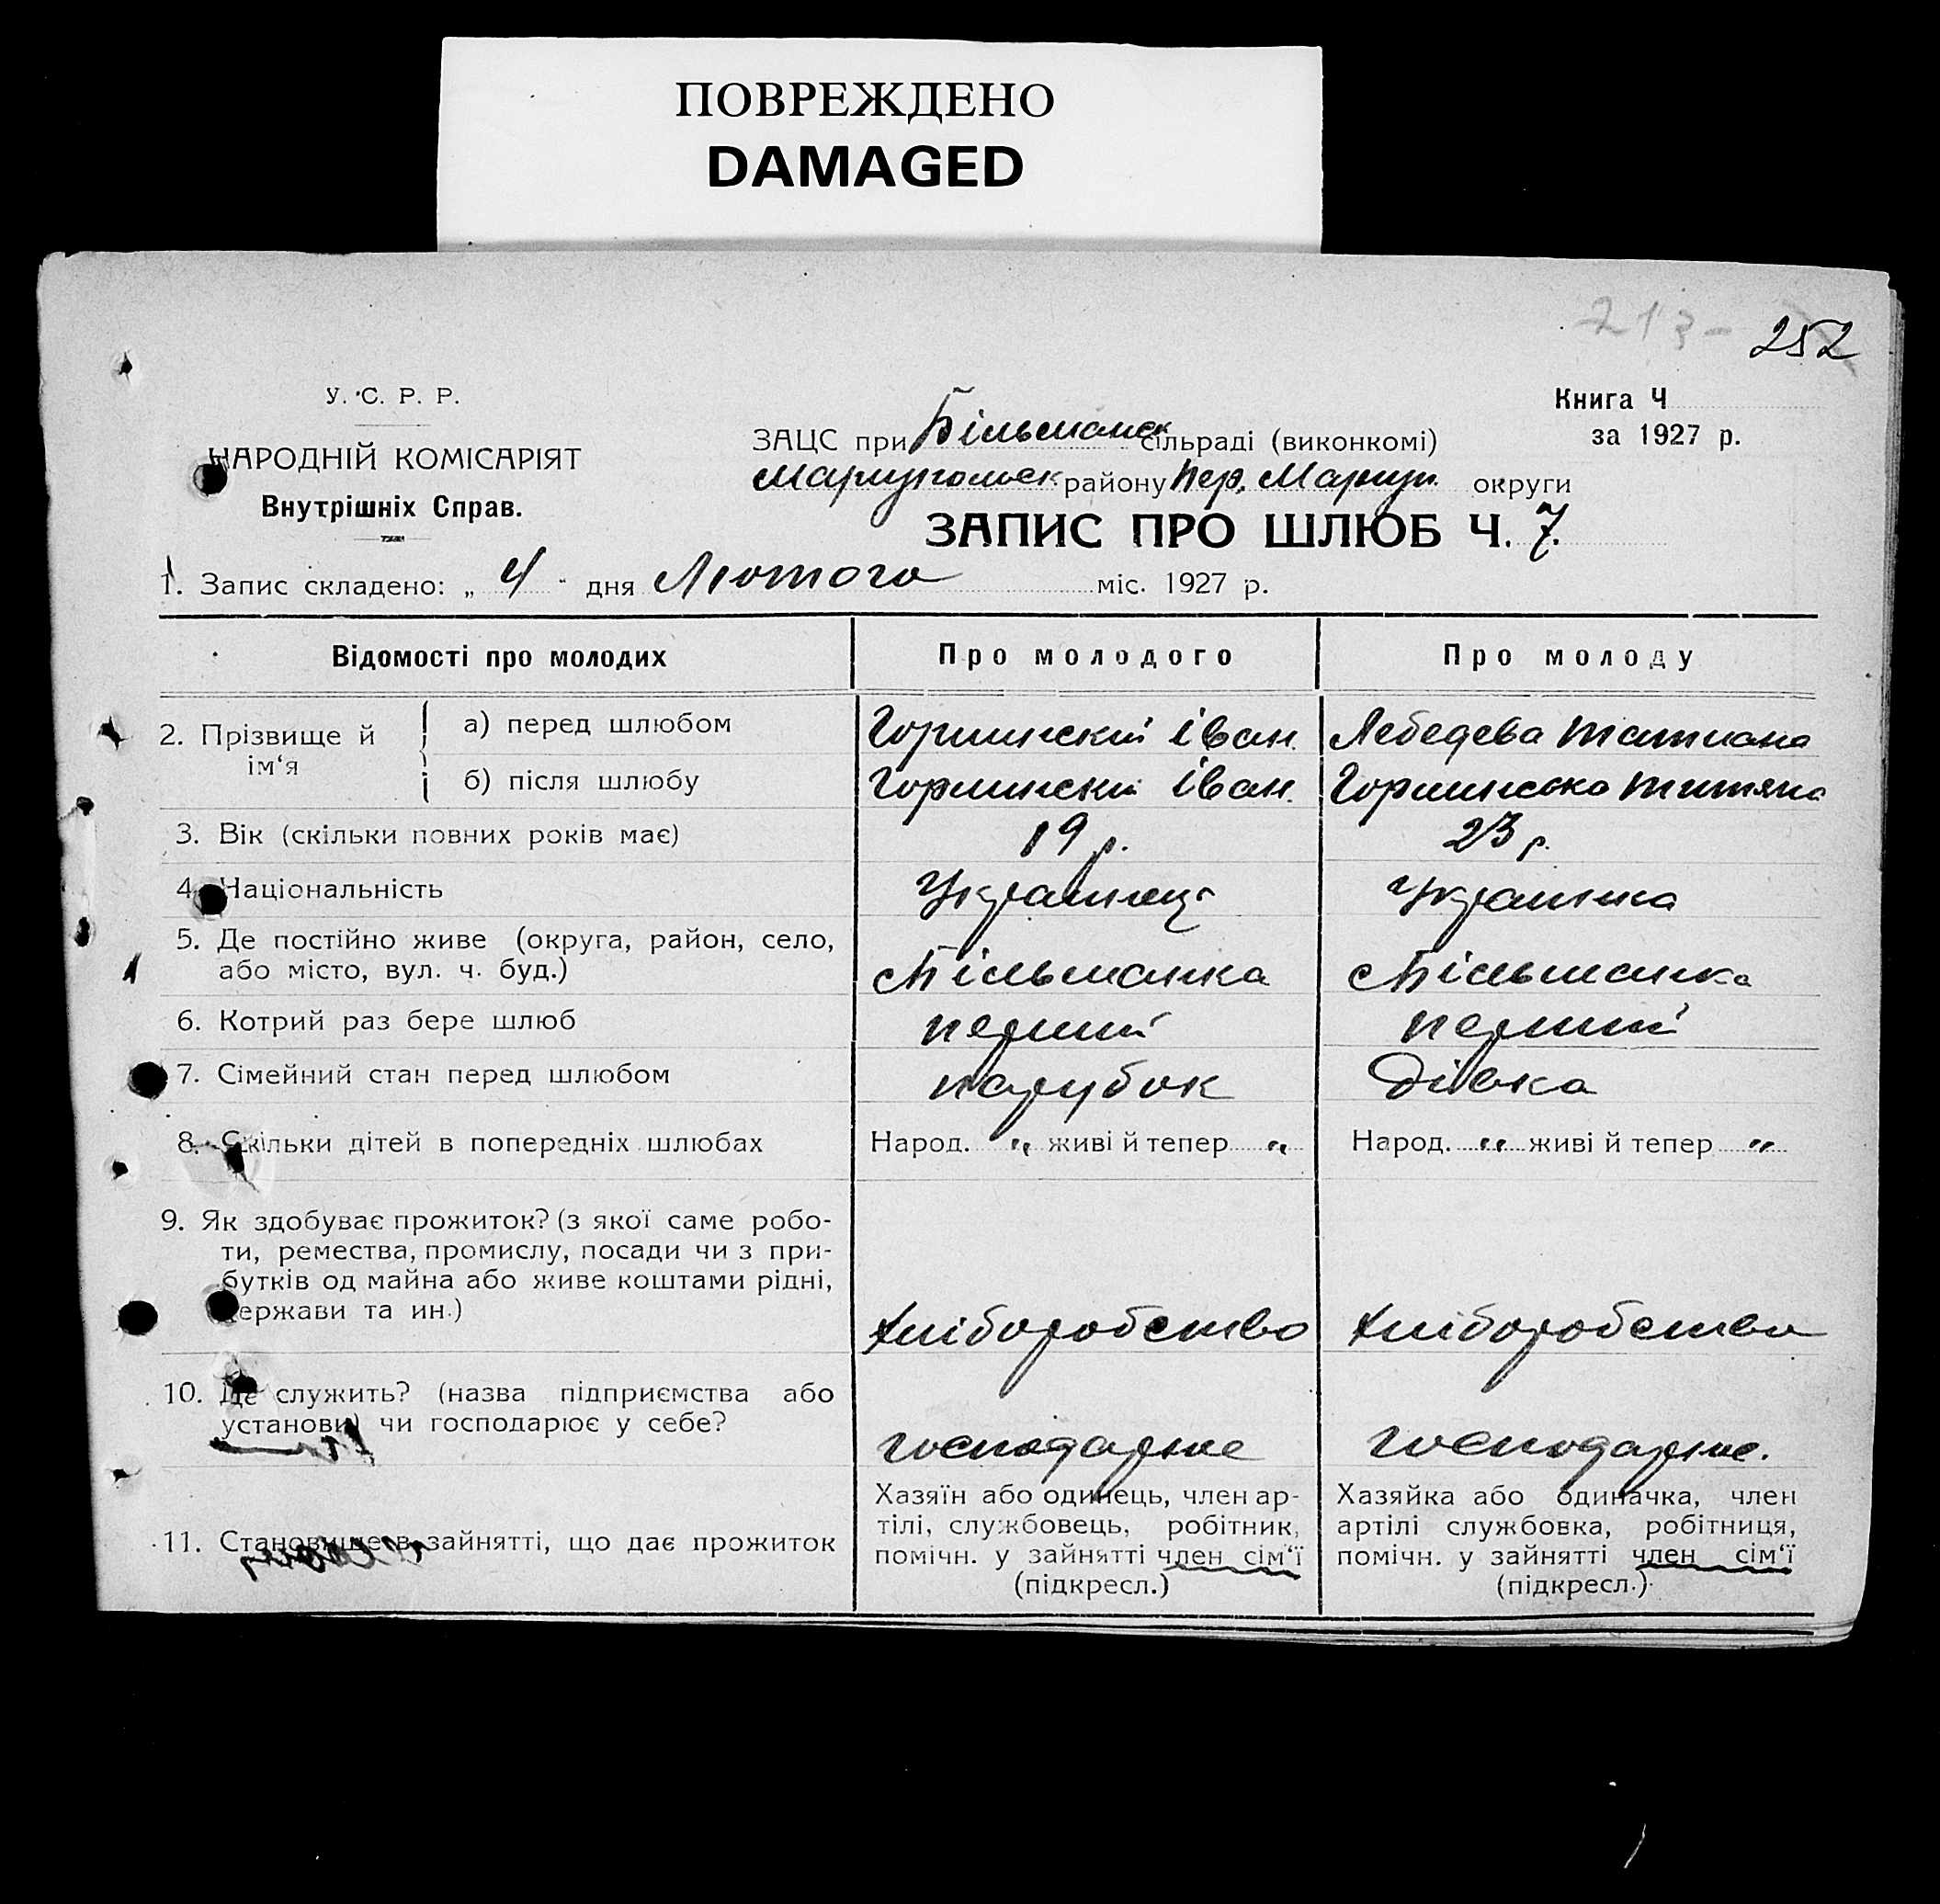 ПОВРЕЖДЕНО
DAMAGED
213-
252
У. С. Р. Р.
НАРОДНІЙ КОМІСАРІЯТ
Внутрішніх Справ.
Книга Ч
за 1927 р.
ЗАЦС при Більманск сільраді (виконкомі)
Мариупольск району Пер. Мариуп. округи
ЗАПИС ПРО ШЛЮБ Ч. 7.
1. Запис складено: „ 4 " дня Лютого міс. 1927 р.
Відомості про молодих Про молодого Про молоду
2. Прізвище й ім‘я
а) перед шлюбом Іван. Лебедева Татиана
б) після шлюбу Іван. Татяна
3. Вік (скільки повних років має) 19 р. 23 р.
4. Національність Українець Українка
5. Де постійно живе (округа, район, село,
або місто, вул. ч. буд.) с Більманка с Більманка
6. Котрий раз бере шлюб перший перший
7. Сімейний стан перед шлюбом парубок Дівка
8. Скільки дітей в попередніх шлюбах Народ. „ живі й тепер „ Народ. „ живі й тепер „
9. Як здобуває прожиток? (з якої саме робо-
ти, ремества, промислу, посади чи з при-
бутків од майна або живе коштами рідні,
держави та ин.) Хліборобство Хліборобство
10. Де служить? (назва підприємства або
установи) чи господарює у себе? господарює господарює.
11. Становище в зайнятті, що дає прожиток
Хазяїн або одинець, член ар-
тілі, службовець, робітник,
помічн. у зайнятті член сім‘ї
(підкресл.)
Хазяйка або одиначка, член
артілі службовка, робітниця,
помічн. у зайнятті член сім‘ї
(підкресл.)